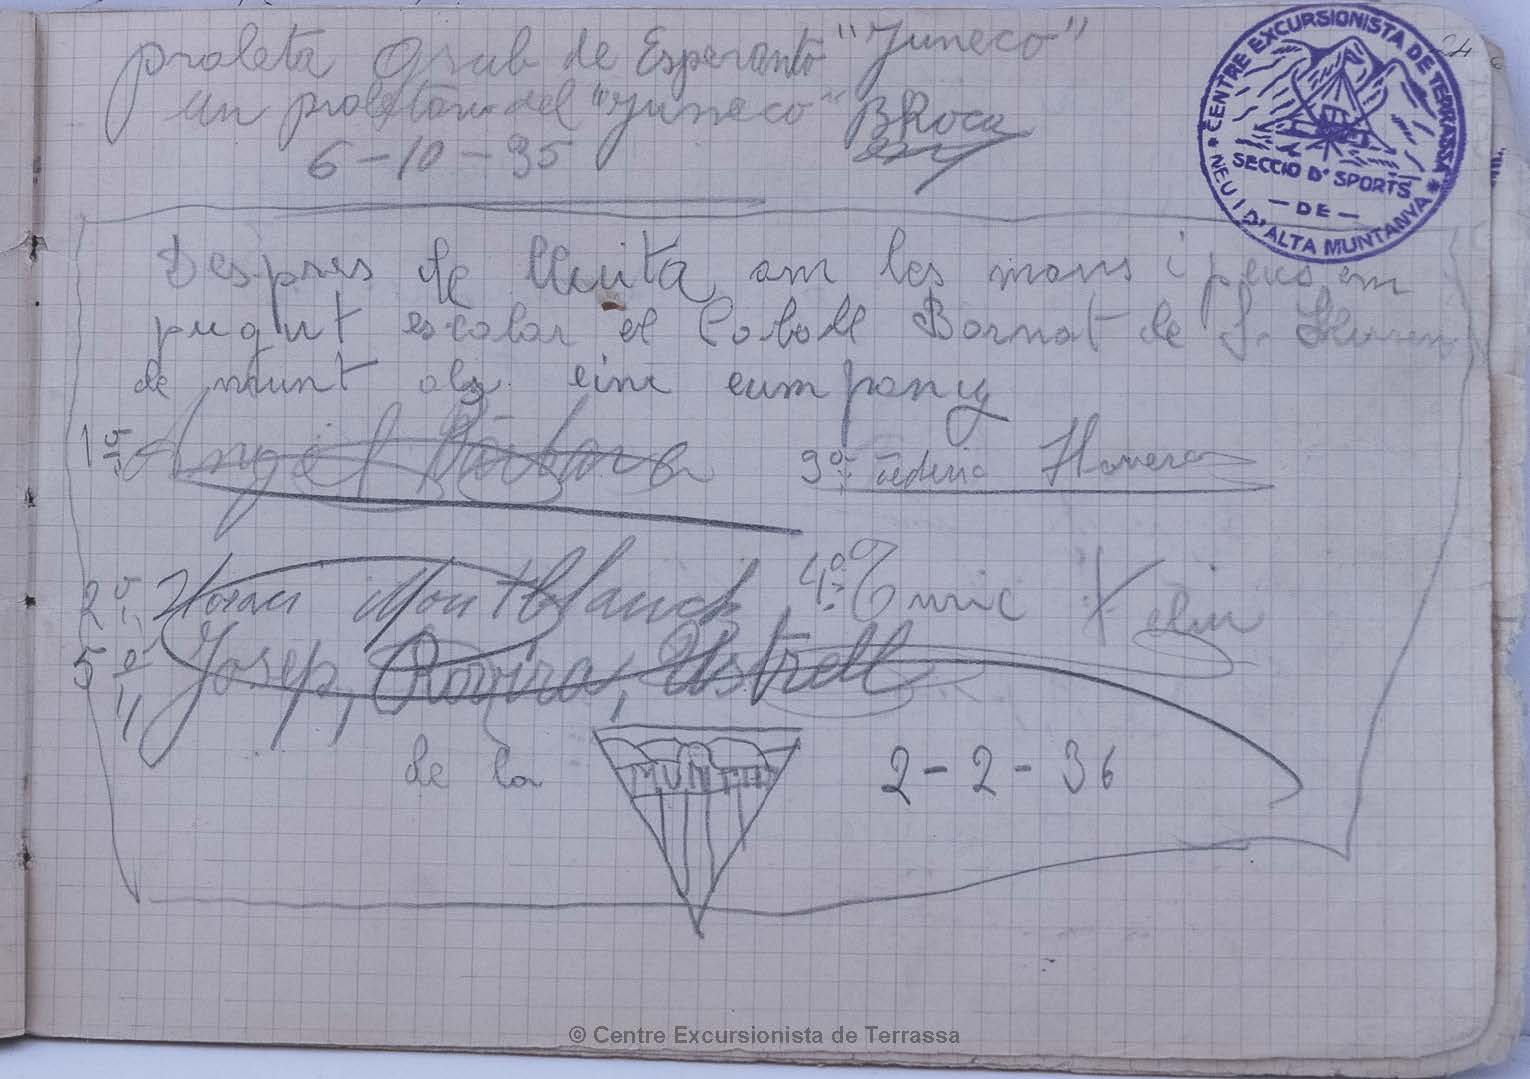 proleta Grub de Esperanto "Juneco"
un proletari del "Juneco" BRoca
6-10-35
24
CENTRE EXCURSIONISTA DE TERRASSA
SECCIO D'SPORTS
- DE -
NEU I D'ALTA MUNTANYA
Despres de lluita am les mans i peus em
pugut escalar el Caball Bernat de S. Lloren
de munt als cinc cumpany
1º Angel Barbara
3º Federic
2º Montblanch
4º Enric
5è Josep, Rovira, Ustrell
de la
2-2-36
© Centre Excursionista de Terrassa